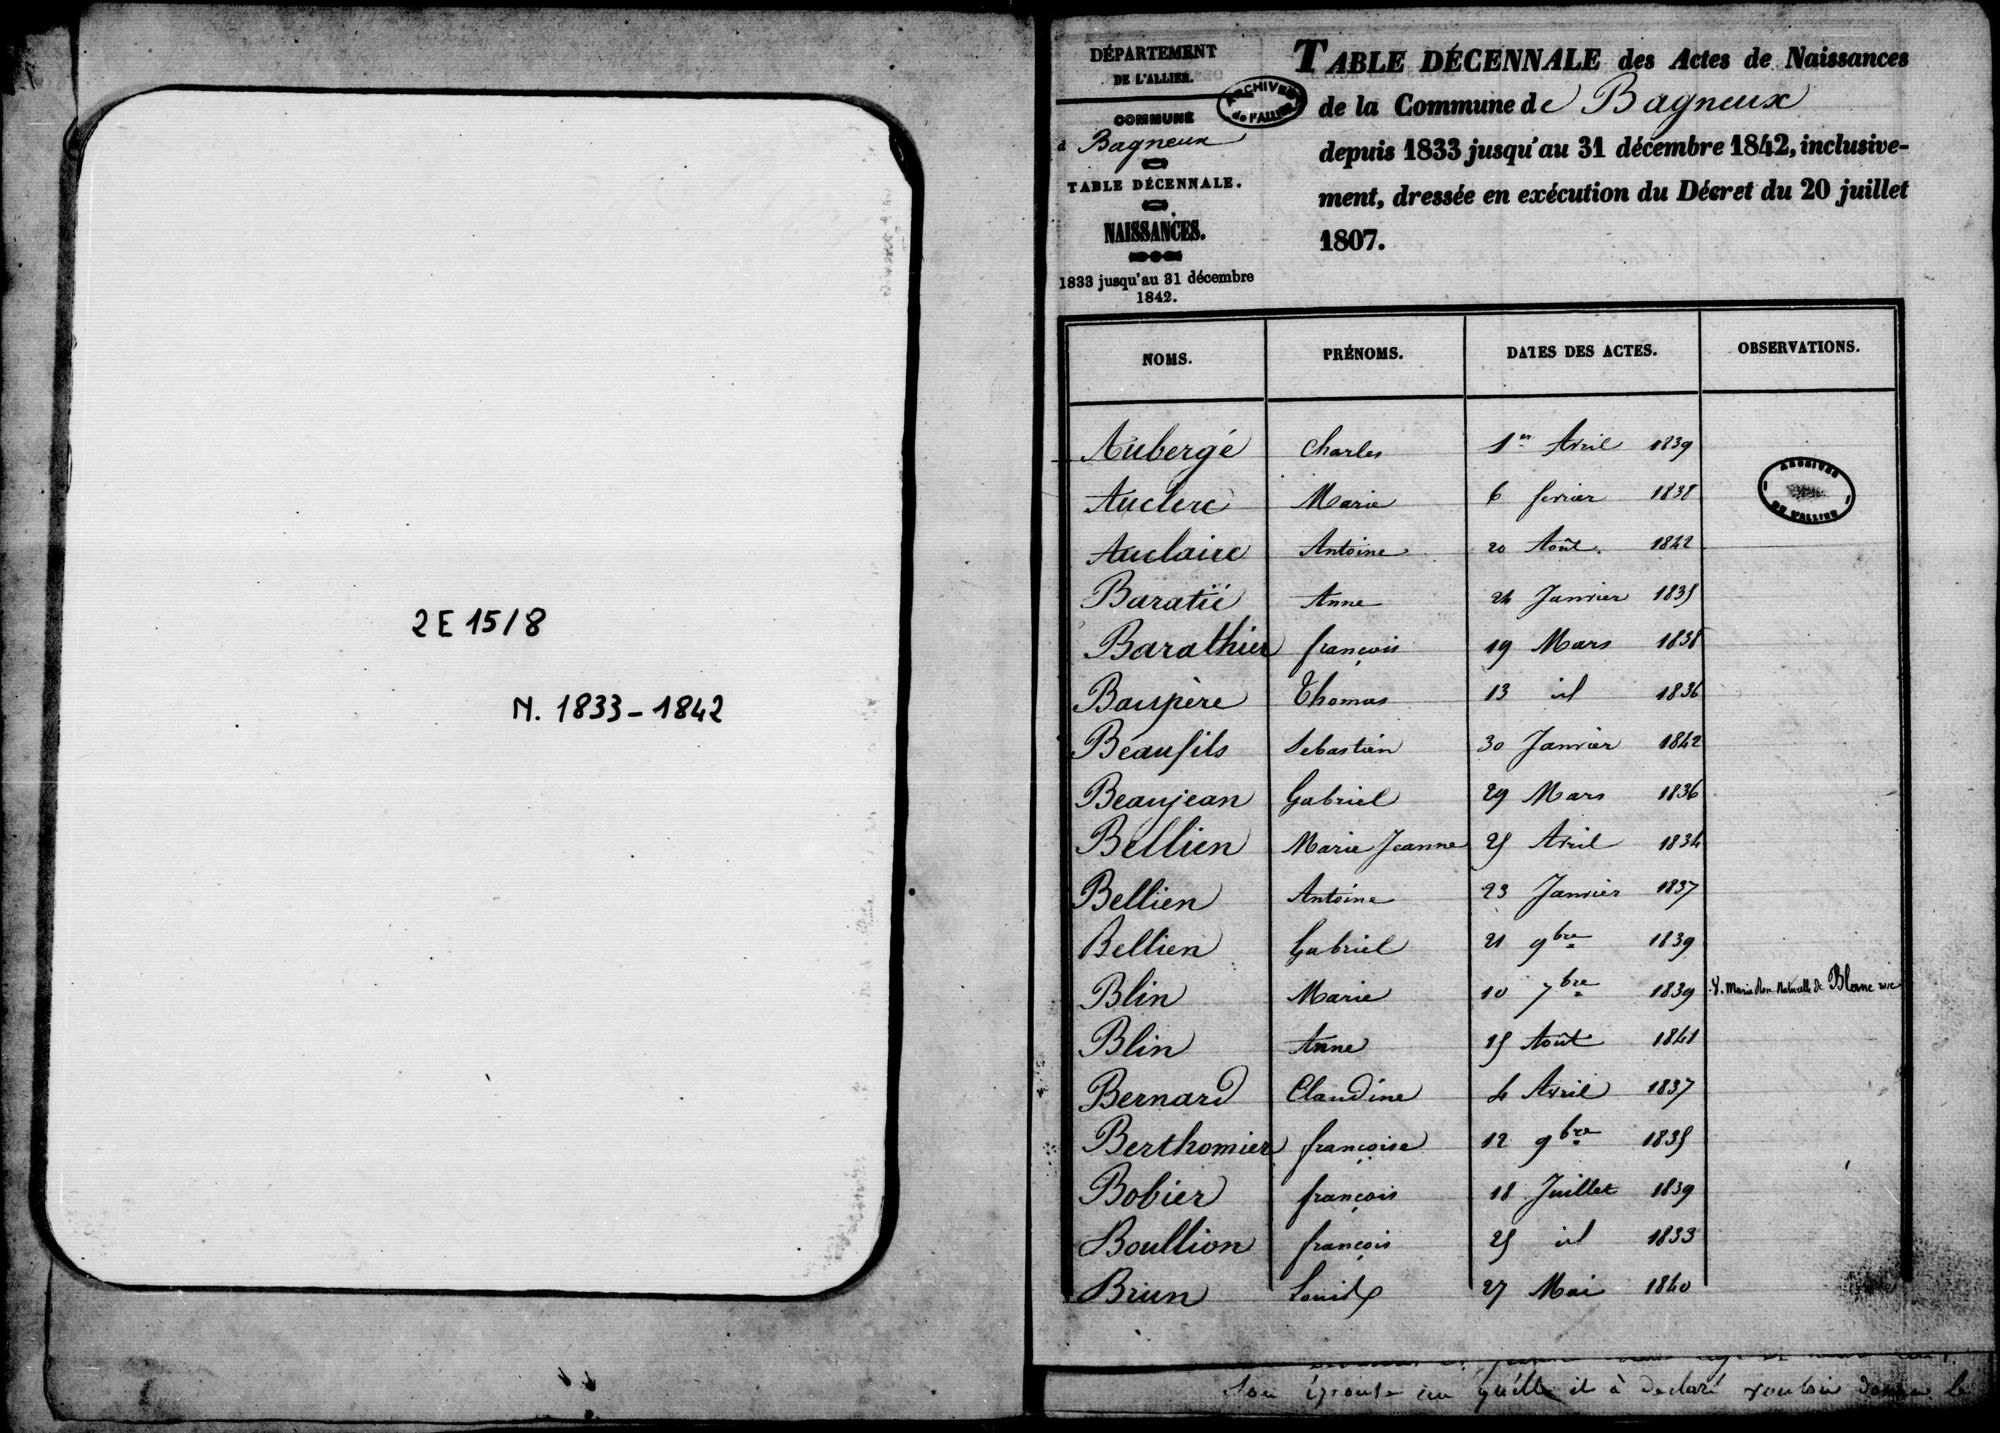 2 E 15/8
N. 1833-1842
DÉPARTEMENT
DE L'ALLIER.
COMMUNE
d Bagneux
TABLE DÉCENNALE.
NAISSANCES.
1833 jusqu'au 31 décembre
1842.
ARCHIVES
de l'ALLIER
TABLE DÉCENNALE des Actes de Naissances
de la Commune de Bagneux
depuis 1833 jusqu'au 31 décembre 1842, inclusive-
ment, dressée en exécution du Décret du 20 juillet
1807.
NOMS. PRÉNOMS. DATES DES ACTES. OBSERVATIONS.
Aubergé Charles 1er Avril 1839
Auclerc Marie 6 fevrier 1838
ARCHIVES
DE L'ALLIER
Auclaire Antoine 20 Août. 1842
Baratié Anne 24 Janvier 1835
Barathier françois 19 Mars 1838
Baupère Thomas 13 id 1836
Beaufils Sebastien 30 Janvier 1842
Beaujean Gabriel 29 Mars 1836
Bellien Marie Jeanne 25 Avril 1834
Bellien Antoine 23 Janvier 1837
Bellien Gabriel 21 9bre 1839
Blin Marie 10 7bre 1839 V. Marie Naturelle de Blanc
Blin Anne 15 Août 1841
Bernard Claudine 4 Avril 1837
Berthomier françoise 12 9bre 1835
Bobier françois 18 Juillet 1839
Boullion françois 25 id 1833
Brun Louis 27 Mai 1840
son épouse qu'elle il à declaré vouloir donner le